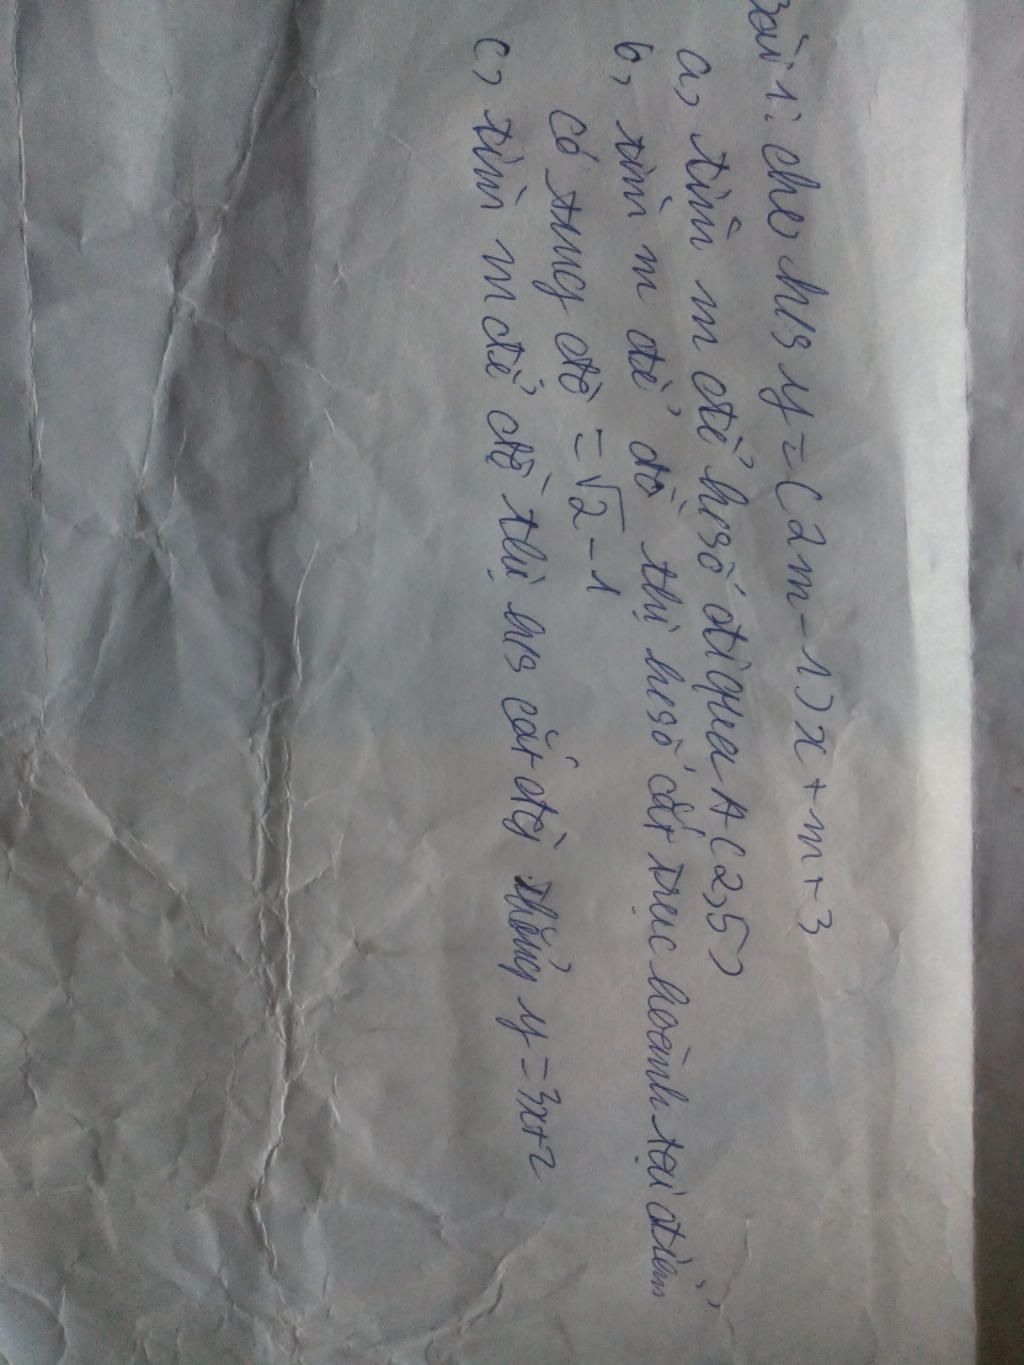 Bài 1: cho hs y = (2m - 1)x + m + 3
a, tìm m để hsố đi qua A(2,5)
b, tìm m để đồ thị hsố cắt trục hoành tại điểm
có tung độ = √2 - 1
c, tìm m để đồ thị hs cắt đg thẳng y = 3x+2